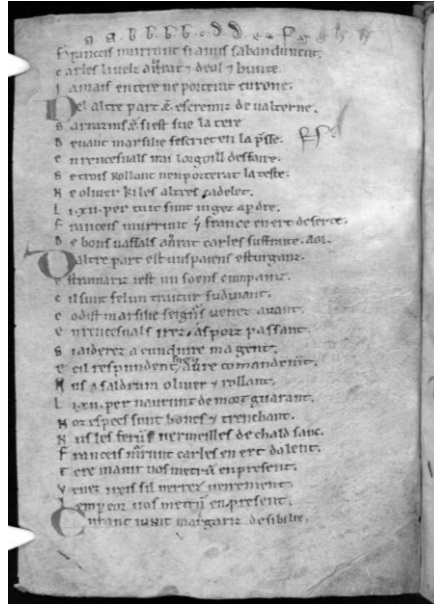 a a b b b b c d d e e f g g h h
Franceis murrunt si a nus sabandunent.
Carles li velz aurat ⁊ deol ⁊ hunte.
Jamais en tere ne porterat curone.
Del altre part ē escremiz de ualterne.
Sarrazins ē si est sue la tere
Deuant marsilie sescriet en la p̄sse.
En rencesuals irai lorgoill desfaire.
Se trois Rollant nen porterat la teste.
Ne oliuer ki les altres cadelet.
Li .xii. per tuit sunt iugez a pdre.
Franceis murrunt ⁊ france en ert deserte.
De bons uassals aurat carles suffraite. aoi.
Daltre part est uns paiens esturganz.
Estramariz i est un soens cumpainz.
Cil sunt felun traitur suduiant.
Co dist marsilie seignurs uenez auant.
En rencesuals irez, as porz passant.
Si aiderez a cunduire ma gent.
E cil respundent a ure comandemēt.
Nus asaldrum oliuer ⁊ rollant.
Li .xii. per naurunt de mort guarant.
Noz espees sunt bones ⁊ trenchant.
Nus les feruns uermeilles de chald sanc.
Franceis murrunt carles en ert dolent.
Tere maiur uos metrū en present.
Venez i reis sil uerrez ueirement.
Lempereor uos metrū en present.
Curant i uint margariz de sibilie.